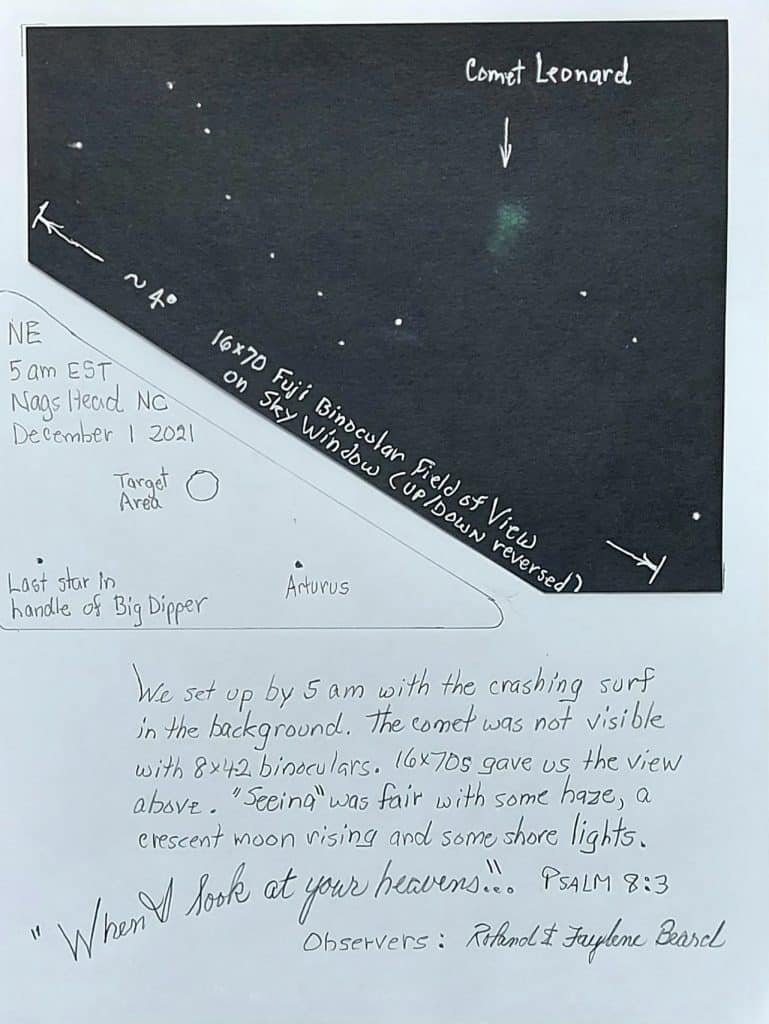 Comet Leonard
~ 4°
16x70 Fuji Binocular Field of View
on Sky Window (UP/DOWN reversed)
NE
5 am EST
Nags Head NC
December 1 2021
Target
Area
Last star in
handle of Big Dipper
Arturus
We set up by 5 am with the crashing surf
in the background. The comet was not visible
with 8x42 binoculars. 16x70s gave us the view
above. "Seeing" was fair with some haze, a
crescent moon rising and some shore lights.
"When I look at your heavens"... PSALM 8:3
Observers: Roland & Faylene Beard